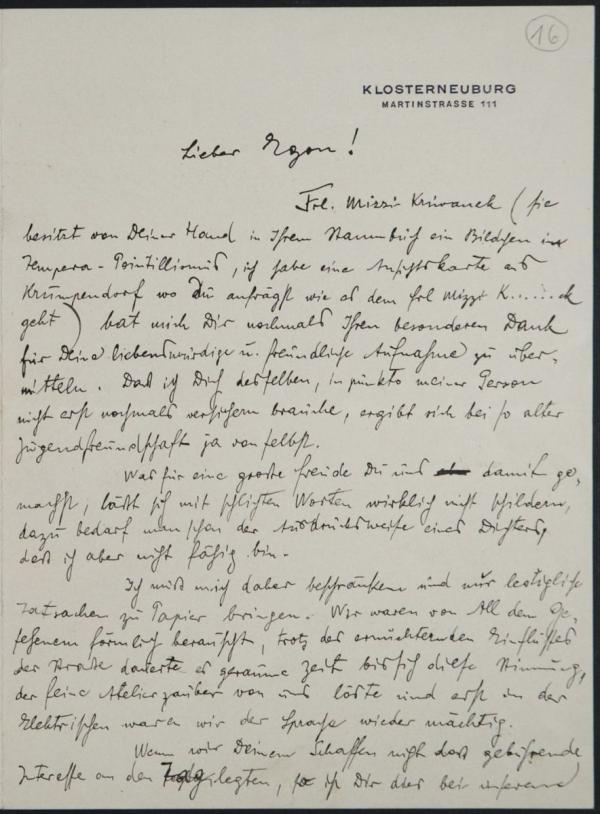 16
KLOSTERNEUBURG
MARTINSTRASSE 111
Lieber Egon!
Frl. Mizzi Kriwanek (sie
besitzt von Deiner Hand in Ihrem Stammbuch ein Bildchen in
Tempera-Pointillismus, ich habe eine Ansichtskarte aus
Krumpendorf wo Du anfrägst wie es dem Frl Mizzi K......ek
geht) bat mich Dir nochmals Ihren besonderen Dank
für Deine liebenswürdige u. freundliche Aufnahme zu über-
mitteln. Das ich Dich desselben, in punkto meiner Person
nicht erst nochmals versichern brauche, ergibt sich bei so alter
Jugendfreundschaft ja von selbst.
Was für eine grosse freude Du uns damit ge-
machst, lässt sich mit schlichten Worten wirklich nicht schildern,
dazu bedarf man schon der Ausdrucksweise eines Dichters,
dass ich aber nicht fähig bin.
Ich muss mich daher beschränken und nur lediglich
Tatsachen zu Papier bringen. Wir waren von All dem Ge-
sehenem förmlich berauscht, trotz des ernüchternden Einflusses
der dauerte es geraume Zeit bis sich diese Stimmung,
der feine Atelierzauber von uns löste und erst in der
Elektrischen waren wir der Sprache wieder mächtig.
Wenn wir Deinem Schaffen nicht das gebührende
Interesse an den Tag legten, so ist Dir dies bei unserem